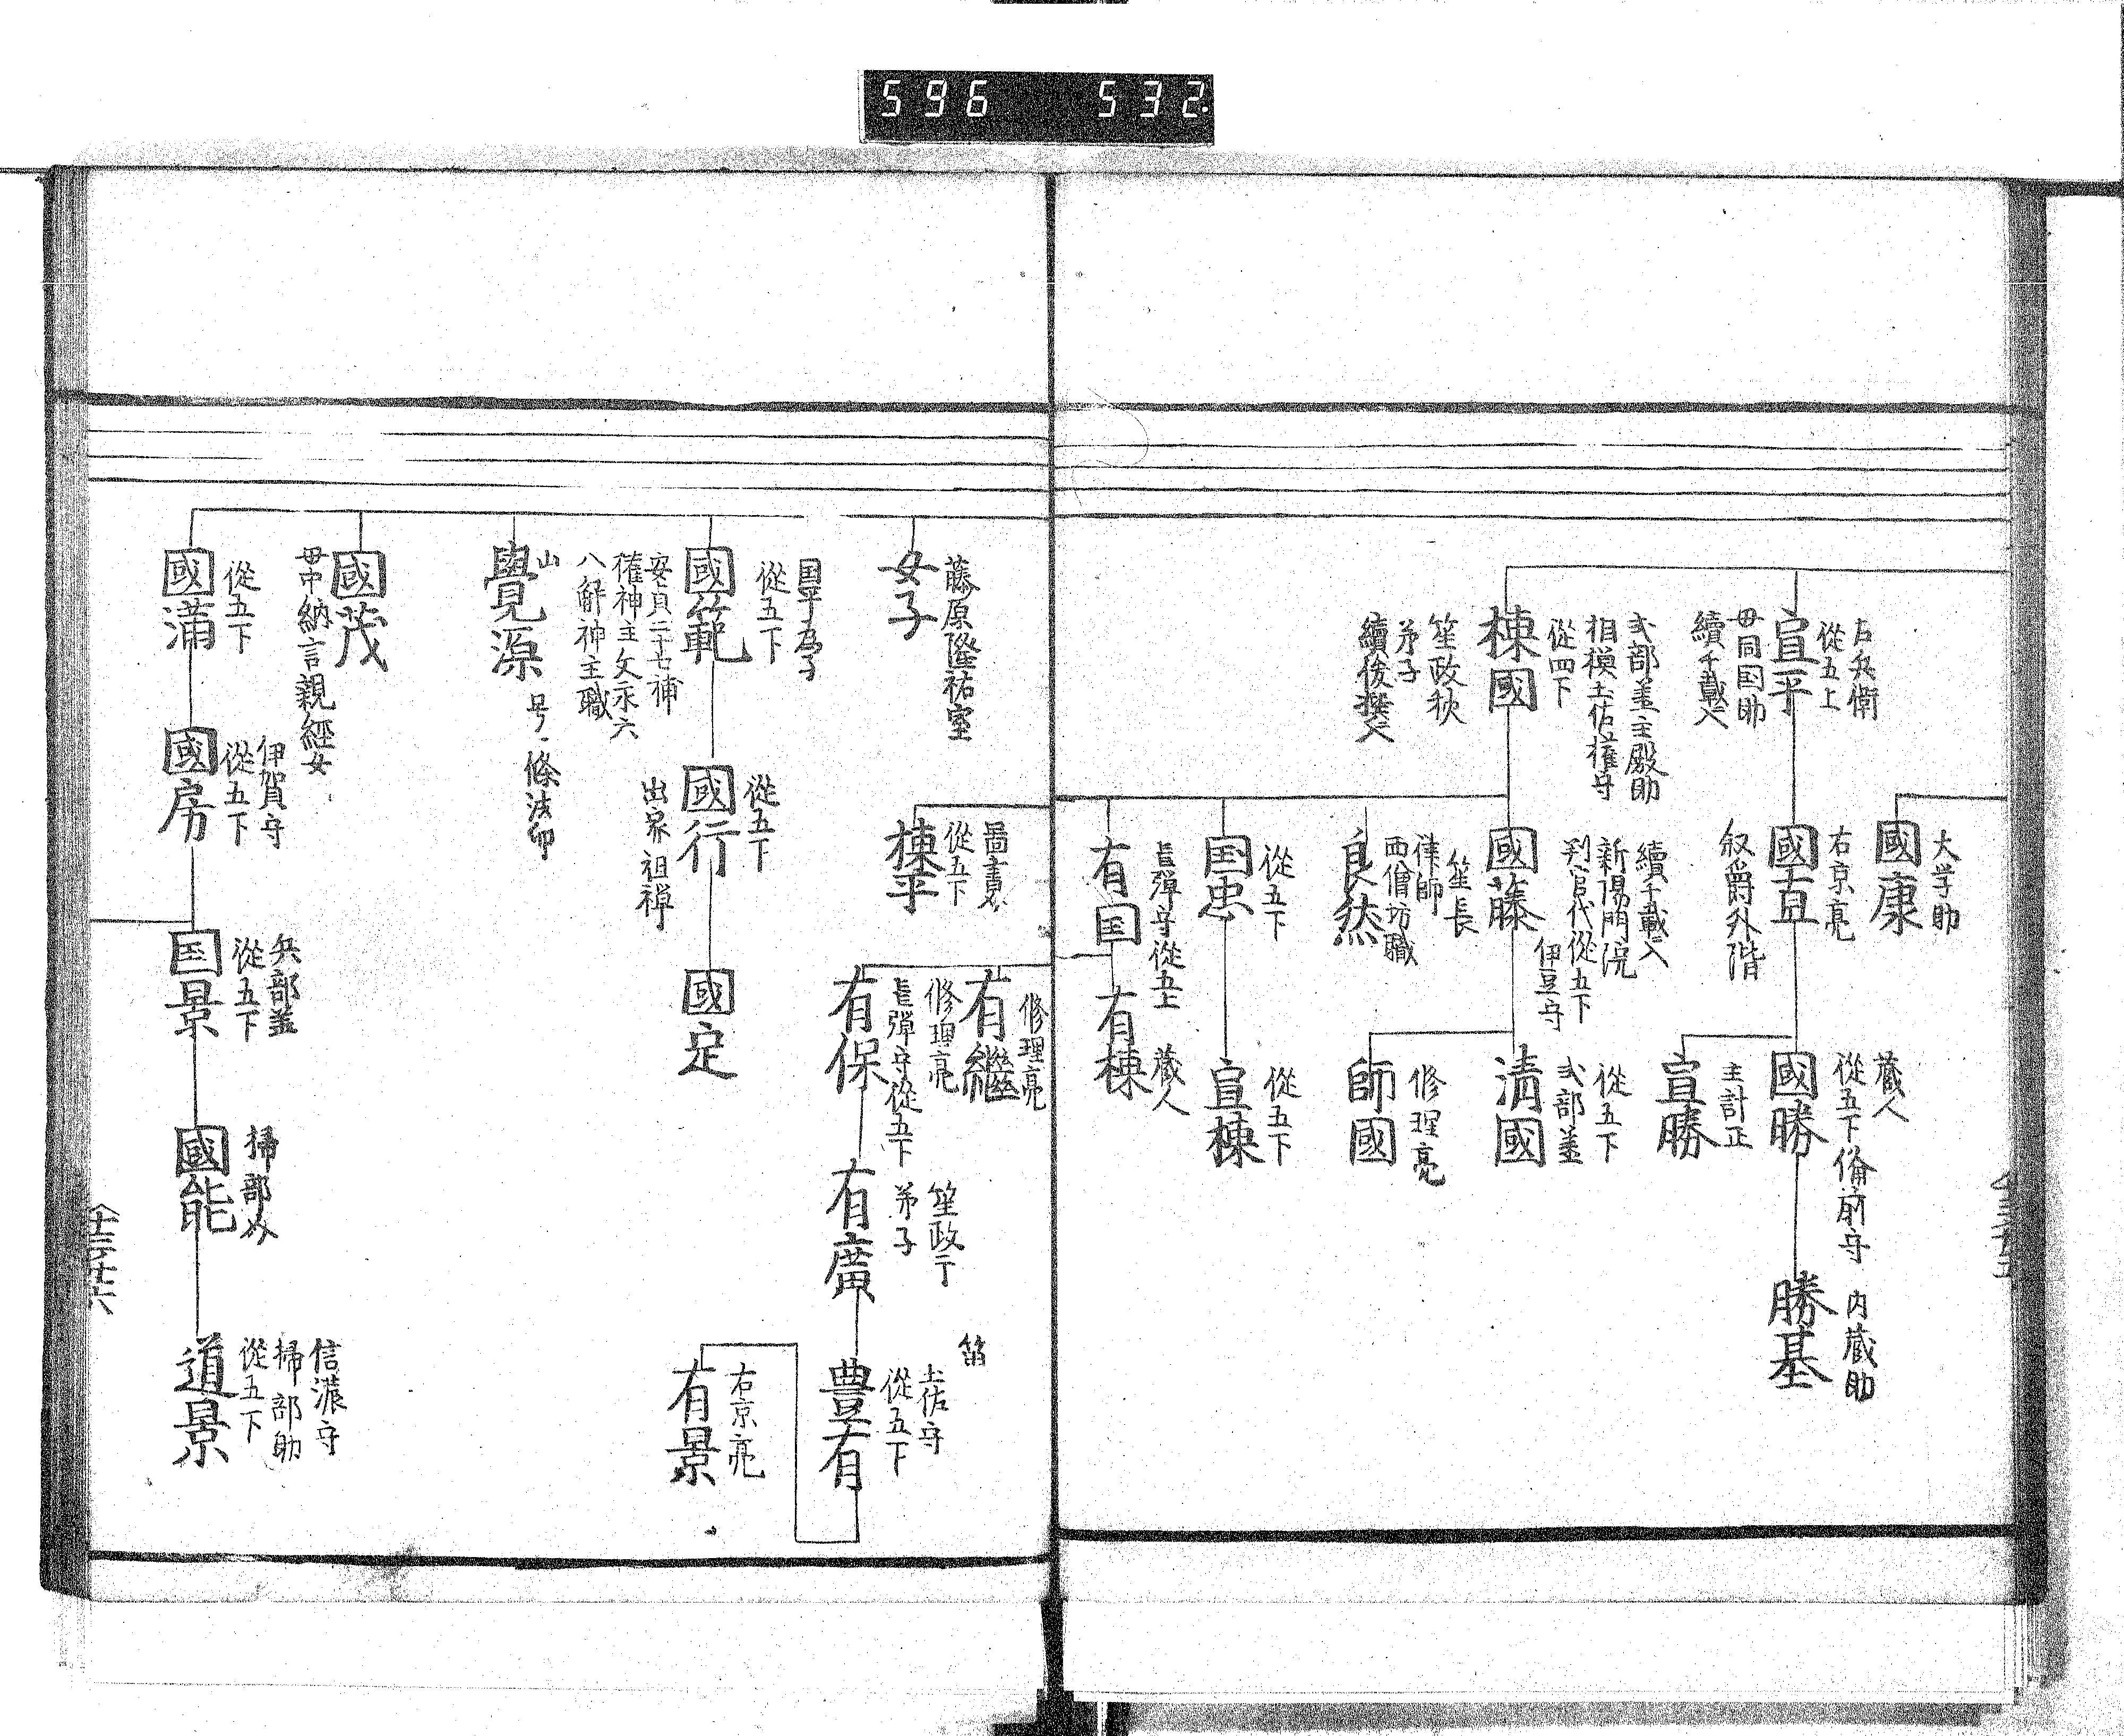 596 532
大学助
國康
右兵衛
從五上
宣平
母同国助
續千載入
右京亮
國直
叙爵外階
蔵人
從五下備前守
國勝
内蔵助
勝基
主計正
宣勝
式部丞主殿助
相模土佐権守
從四下
棟國
笙政秋
弟子
續後撰入
續千載入
新陽明門院
判官代從五下
伊豆守
國藤
從五下
式部丞
清國
修理亮
師國
笙長
律師
西僧坊職
良然
從五下
国忠
從五下
宣棟
從五上
有国
蔵人
有棟
藤原隆祐室
女子
從五下
棟平
修理亮
有継
修理亮
從五下
有保
笙政
弟子
有廣
笛
土佐守
從五下
豊有
右京亮
有景
国平為子
從五下
國範
安貞二十七補
権神主文永六
八辞神主職
從五下
國行
出家祖禅
國定
山
覺源
号一條法印
國茂
母中納言親経女
從五下
國満
伊賀守
從五下
國房
兵部丞
從五下
国景
掃部
國能
信濃守
掃部助
從五下
道景